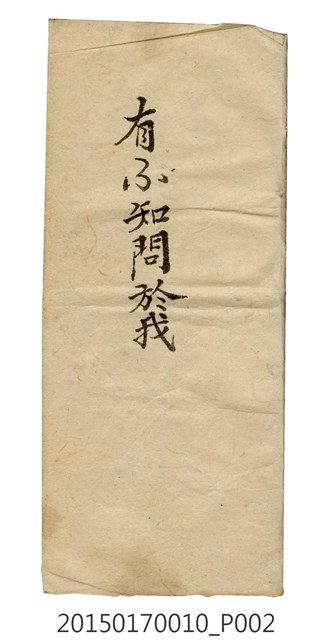 有不知問於我
20150170010_P002